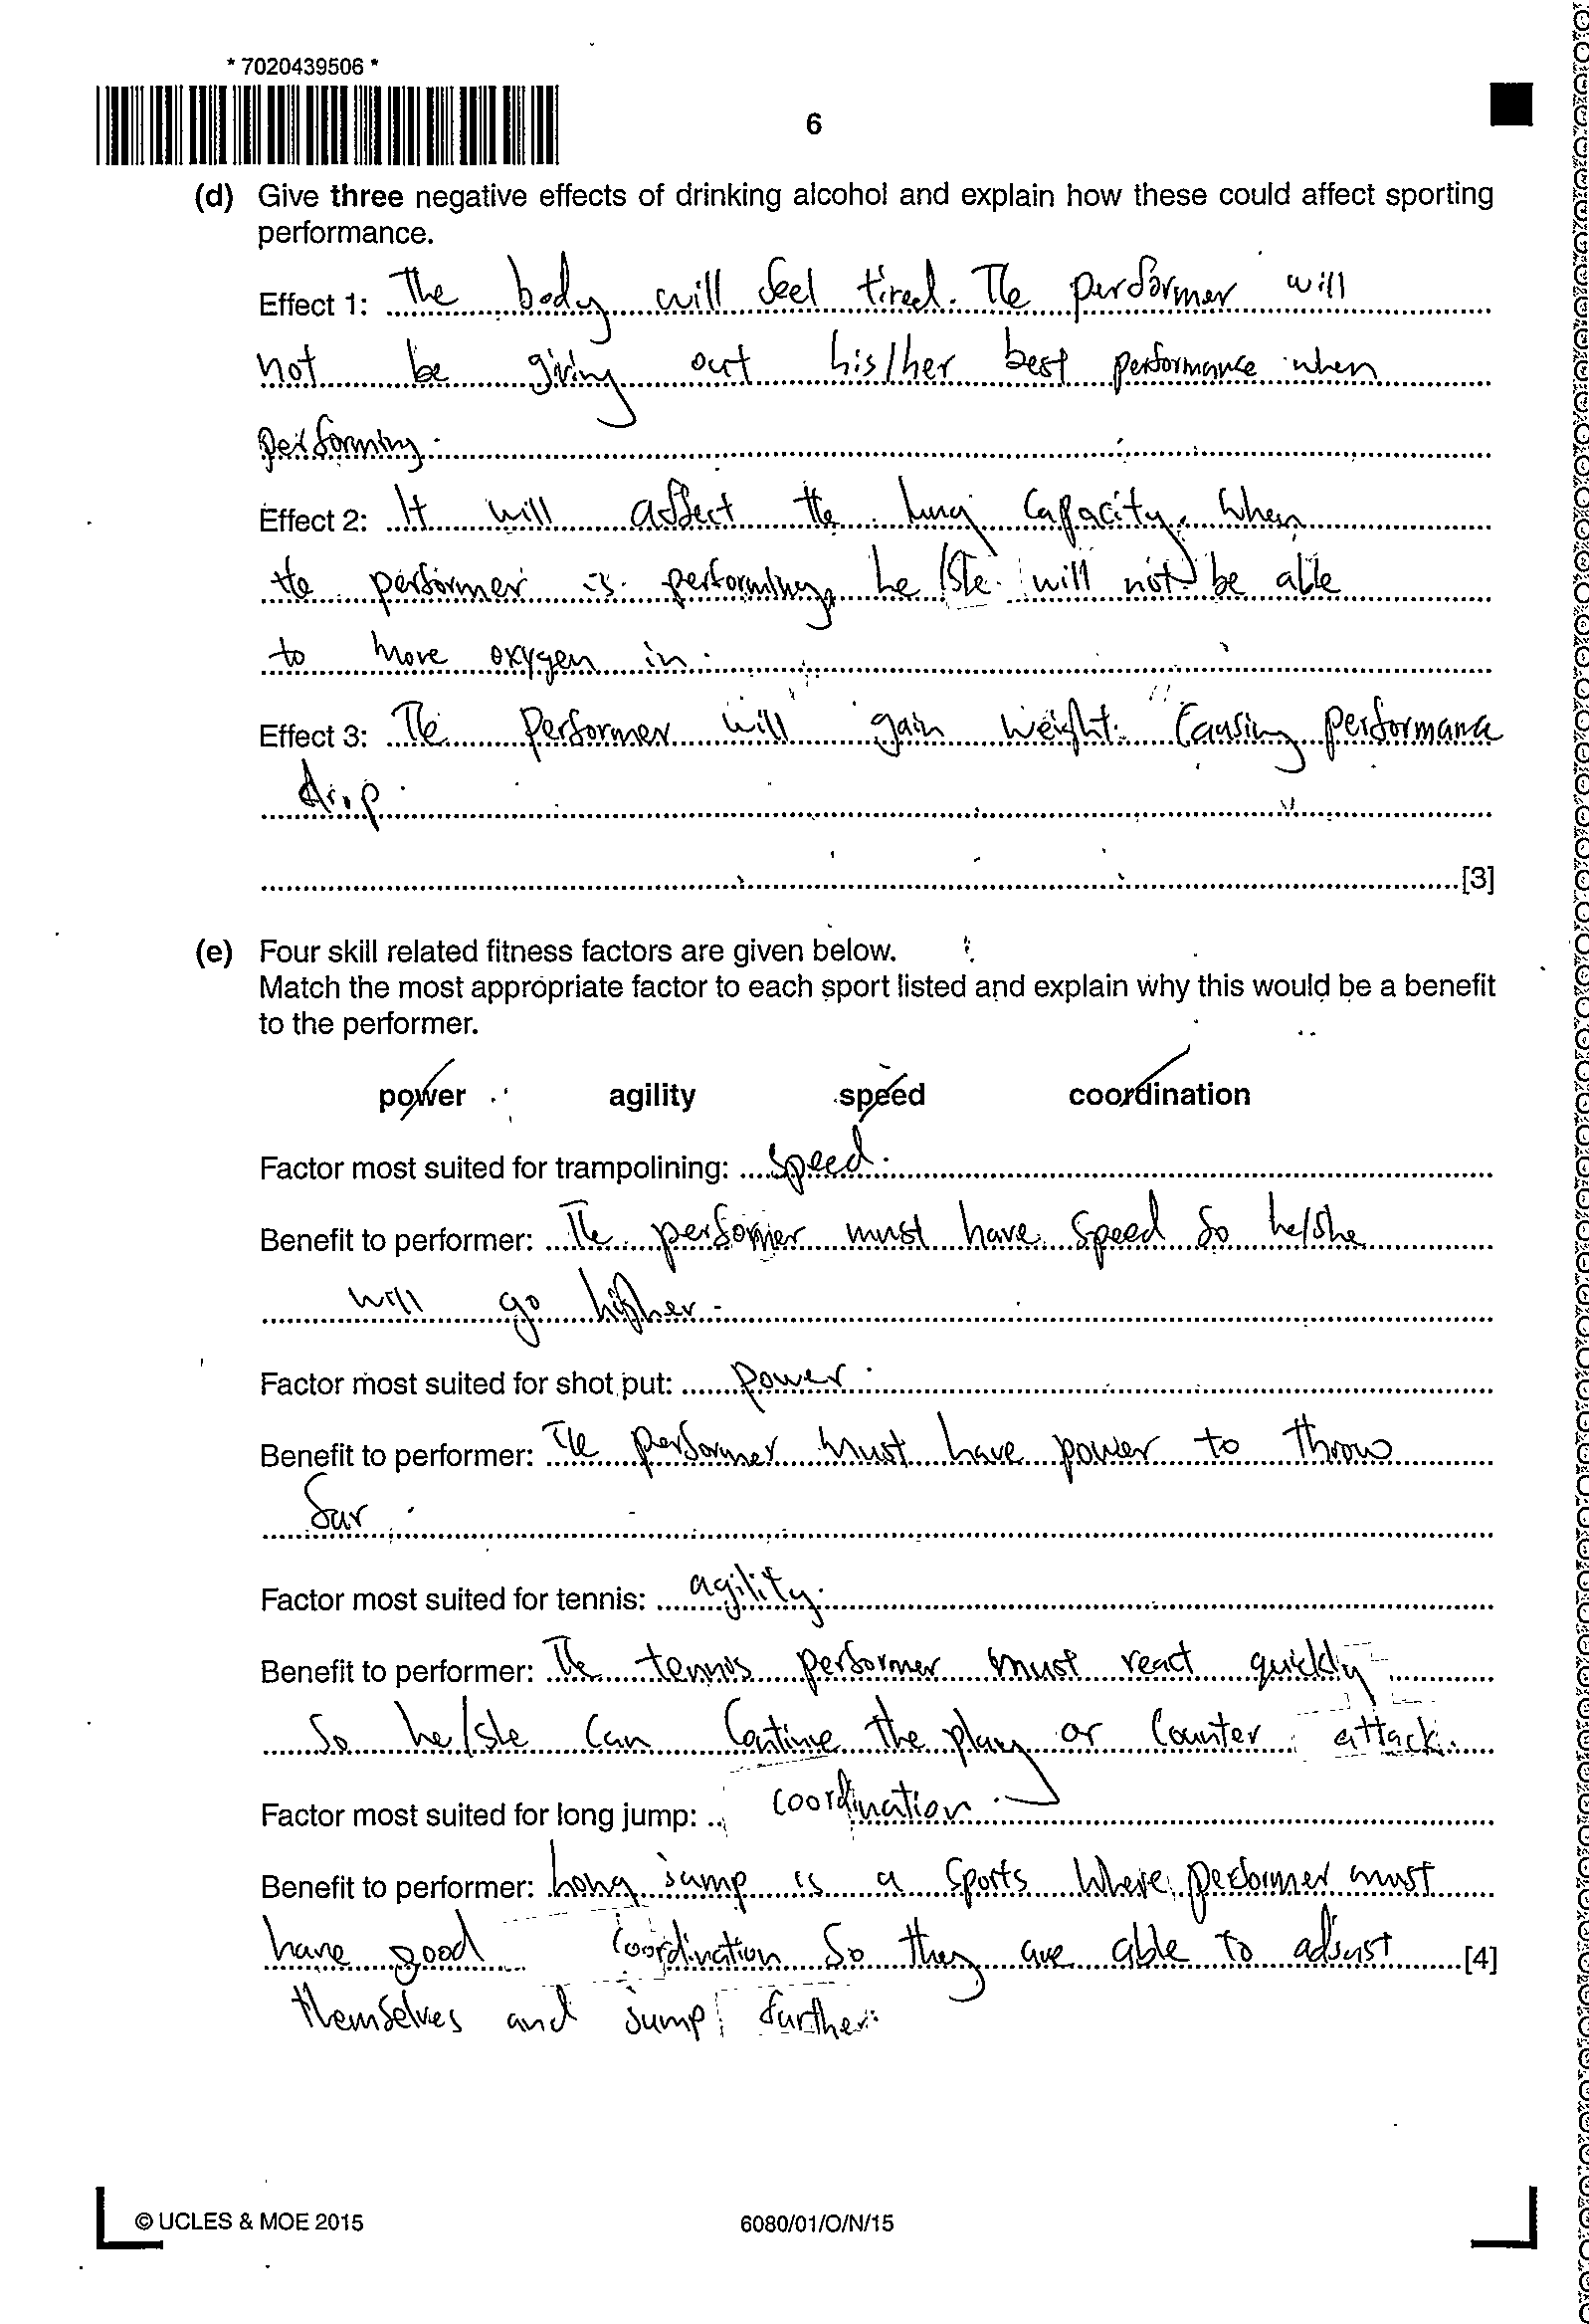 * 7020439506 *
6
(d) Give three negative effects of drinking alcohol and explain how these could affect sporting
performance.
Effect 1: The body will feel tired. The performer will
not be giving out his/her best performance when
performing.
Effect 2: It will affect the lung capacity. When
the performer is performing, he/she will not be able
to move oxygen in.
Effect 3: The performer will gain weight. Causing performance
drop.
[3]
(e) Four skill related fitness factors are given below.
Match the most appropriate factor to each sport listed and explain why this would be a benefit
to the performer.
power agility speed coordination
Factor most suited for trampolining: speed.
Benefit to performer: The performer must have speed so he/she
will go higher.
Factor most suited for shot put: power.
Benefit to performer: The performer must have power to throw
far.
Factor most suited for tennis: agility.
Benefit to performer: The tennis performer must react quickly
so he/she can contine the play or counter attack.
Factor most suited for long jump: coordination.
Benefit to performer: Long jump is a sports where performer must
have good coordination so they are able to adjust [4]
themselves and jump further.
© UCLES & MOE 2015
6080/01/O/N/15